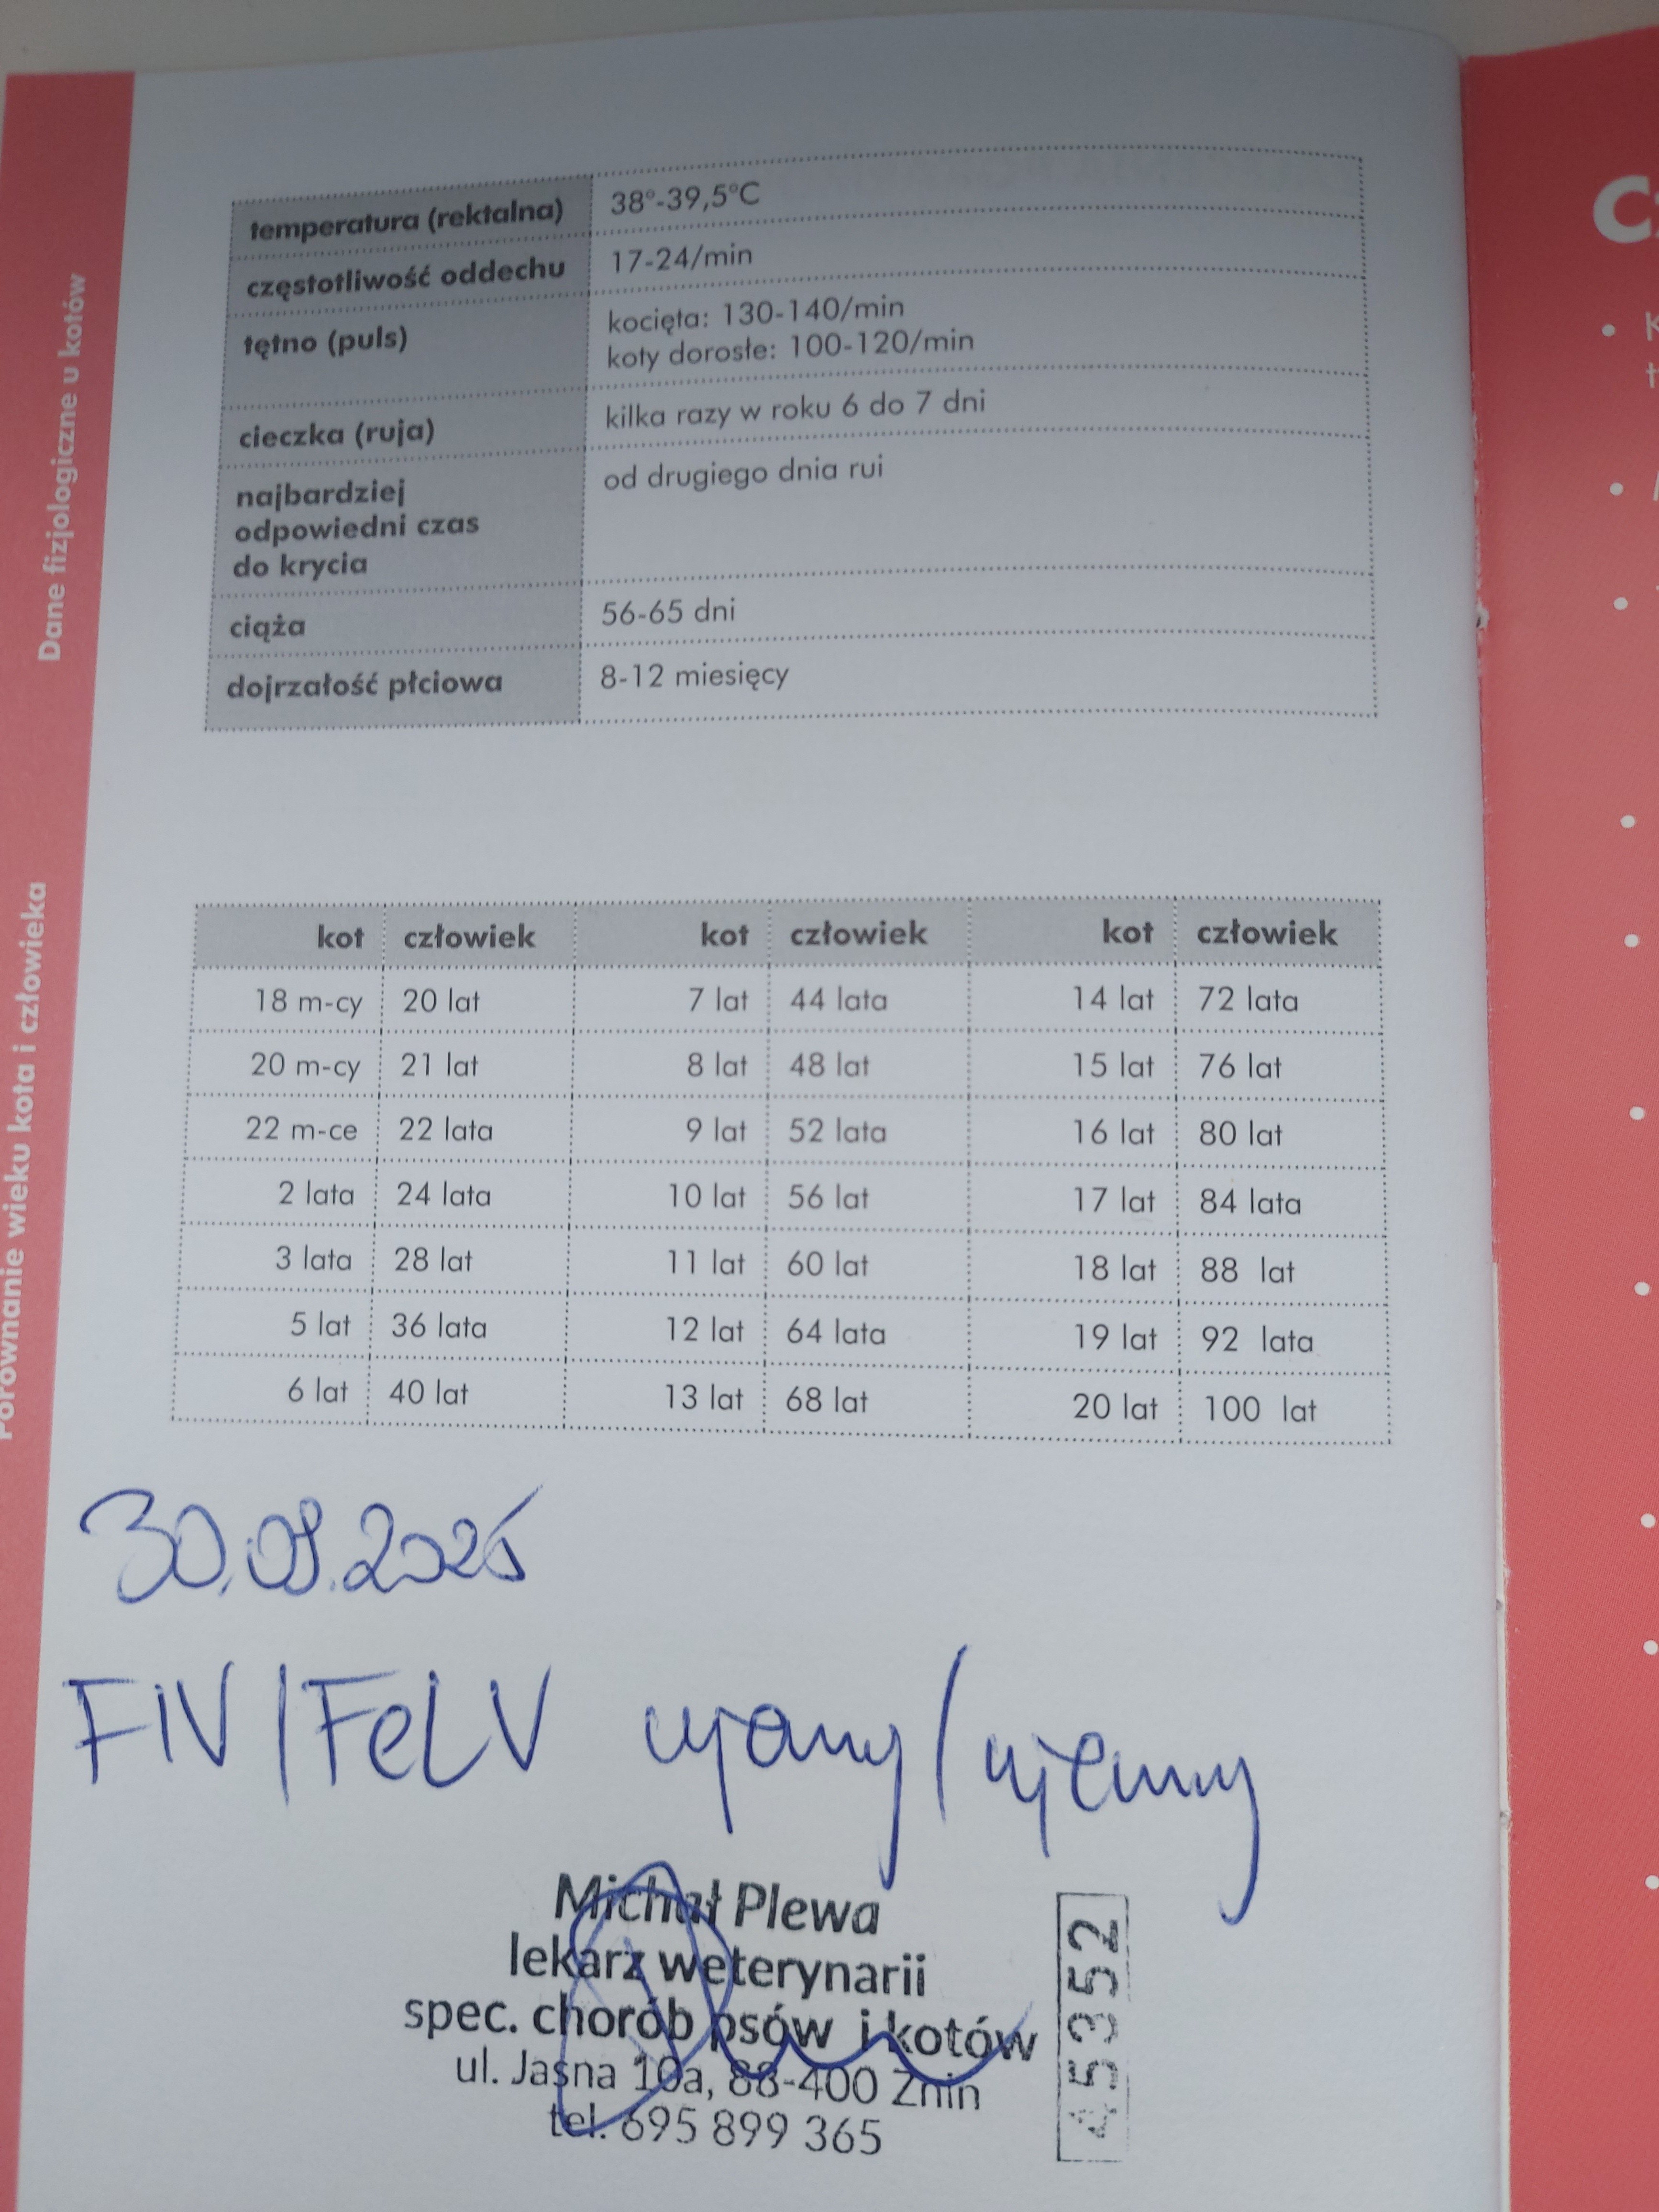 Dane fizjologiczne u kotów
temperatura (rektalna) 38°-39,5°C
częstotliwość oddechu 17-24/min
tętno (puls) kocięta: 130-140/min
koty dorosłe: 100-120/min
cieczka (ruja) kilka razy w roku 6 do 7 dni
najbardziej od drugiego dnia rui
odpowiedni czas
do krycia
ciąża 56-65 dni
dojrzałość płciowa 8-12 miesięcy
Porównanie wieku kota i człowieka
kot człowiek kot człowiek kot człowiek
18 m-cy 20 lat 7 lat 44 lata 14 lat 72 lata
20 m-cy 21 lat 8 lat 48 lat 15 lat 76 lat
22 m-ce 22 lata 9 lat 52 lata 16 lat 80 lat
2 lata 24 lata 10 lat 56 lat 17 lat 84 lata
3 lata 28 lat 11 lat 60 lat 18 lat 88 lat
5 lat 36 lata 12 lat 64 lata 19 lat 92 lata
6 lat 40 lat 13 lat 68 lat 20 lat 100 lat
FIV/FeLV ujemny/ujemny
Michał Plewa
lekarz weterynarii
spec. chorób psów i kotów
ul. Jasna 10a, 88-400 Żnin
tel. 695 899 365
45352